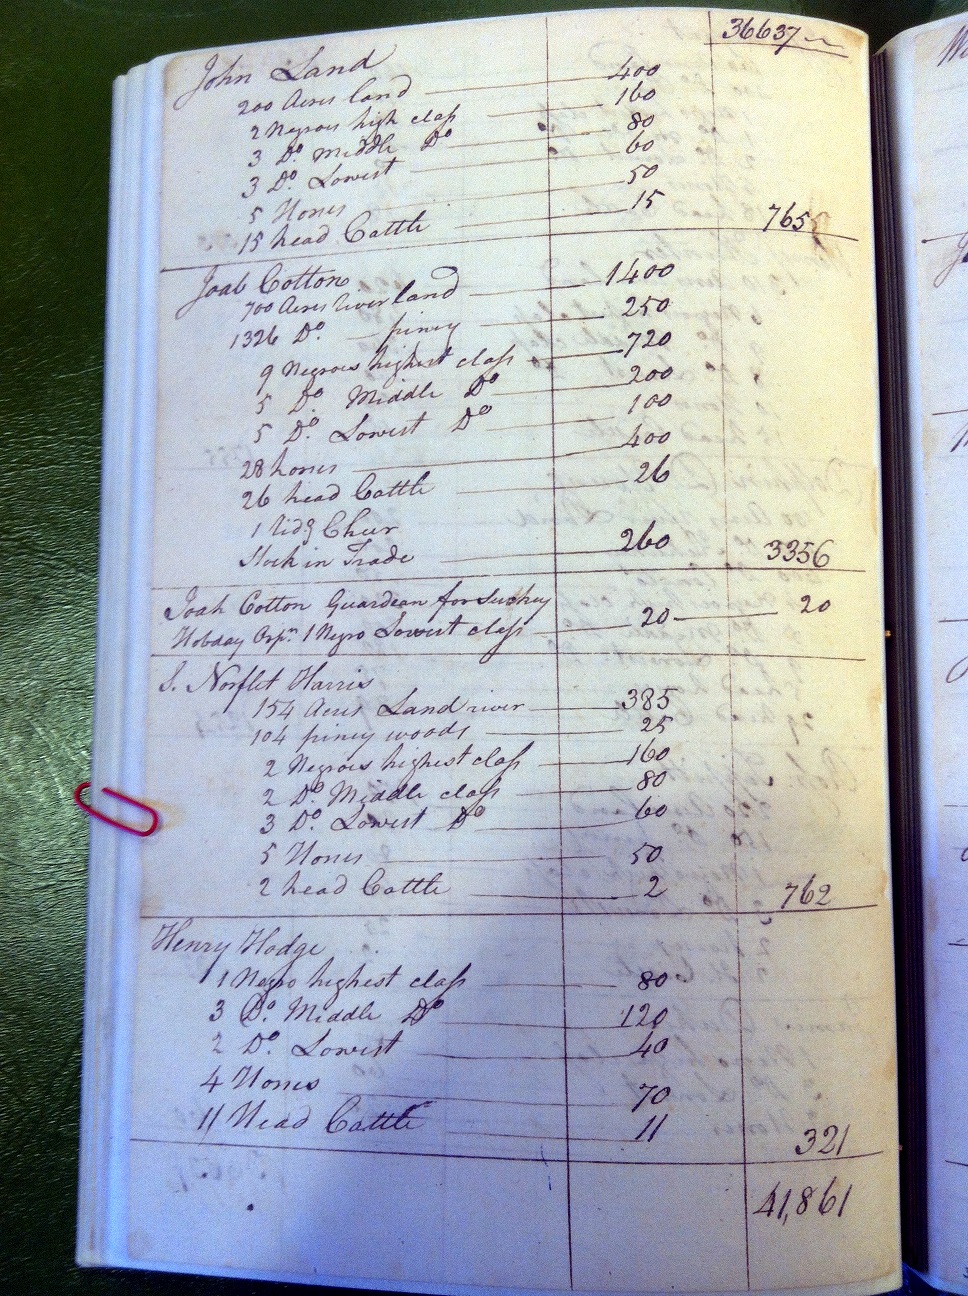 36637
John Land
200 Acres land 400
2 Negroes high class 160
3 Do. Middle Do 80
3 Do. Lowest 60
5 Horses 50
15 head Cattle 15 765
Joab Cotton
700 Acres River land 1400
1326 Do. piney 250
9 Negroes highest class 720
5 Do. Middle Do 200
5 Do. Lowest Do 100
28 horses 400
26 head Cattle 26
1 Ridg Cheer
Stock in Trade 260 3356
Joab Cotton Guardean for Suckey
Hobday Orpn. 1 Negro Lowest class 20 20
S. Norflet Harris
154 Acres Land river 385
104 piney woods 25
2 Negroes highest class 160
2 Do. Middle class 80
3 Do. Lowest Do 60
5 Horses 50
2 head Cattle 2 762
Henry Hodge
1 Negro highest class 80
3 Do. Middle Do 120
2 Do. Lowest 40
4 Horses 70
11 Head Cattle 11 321
41,861